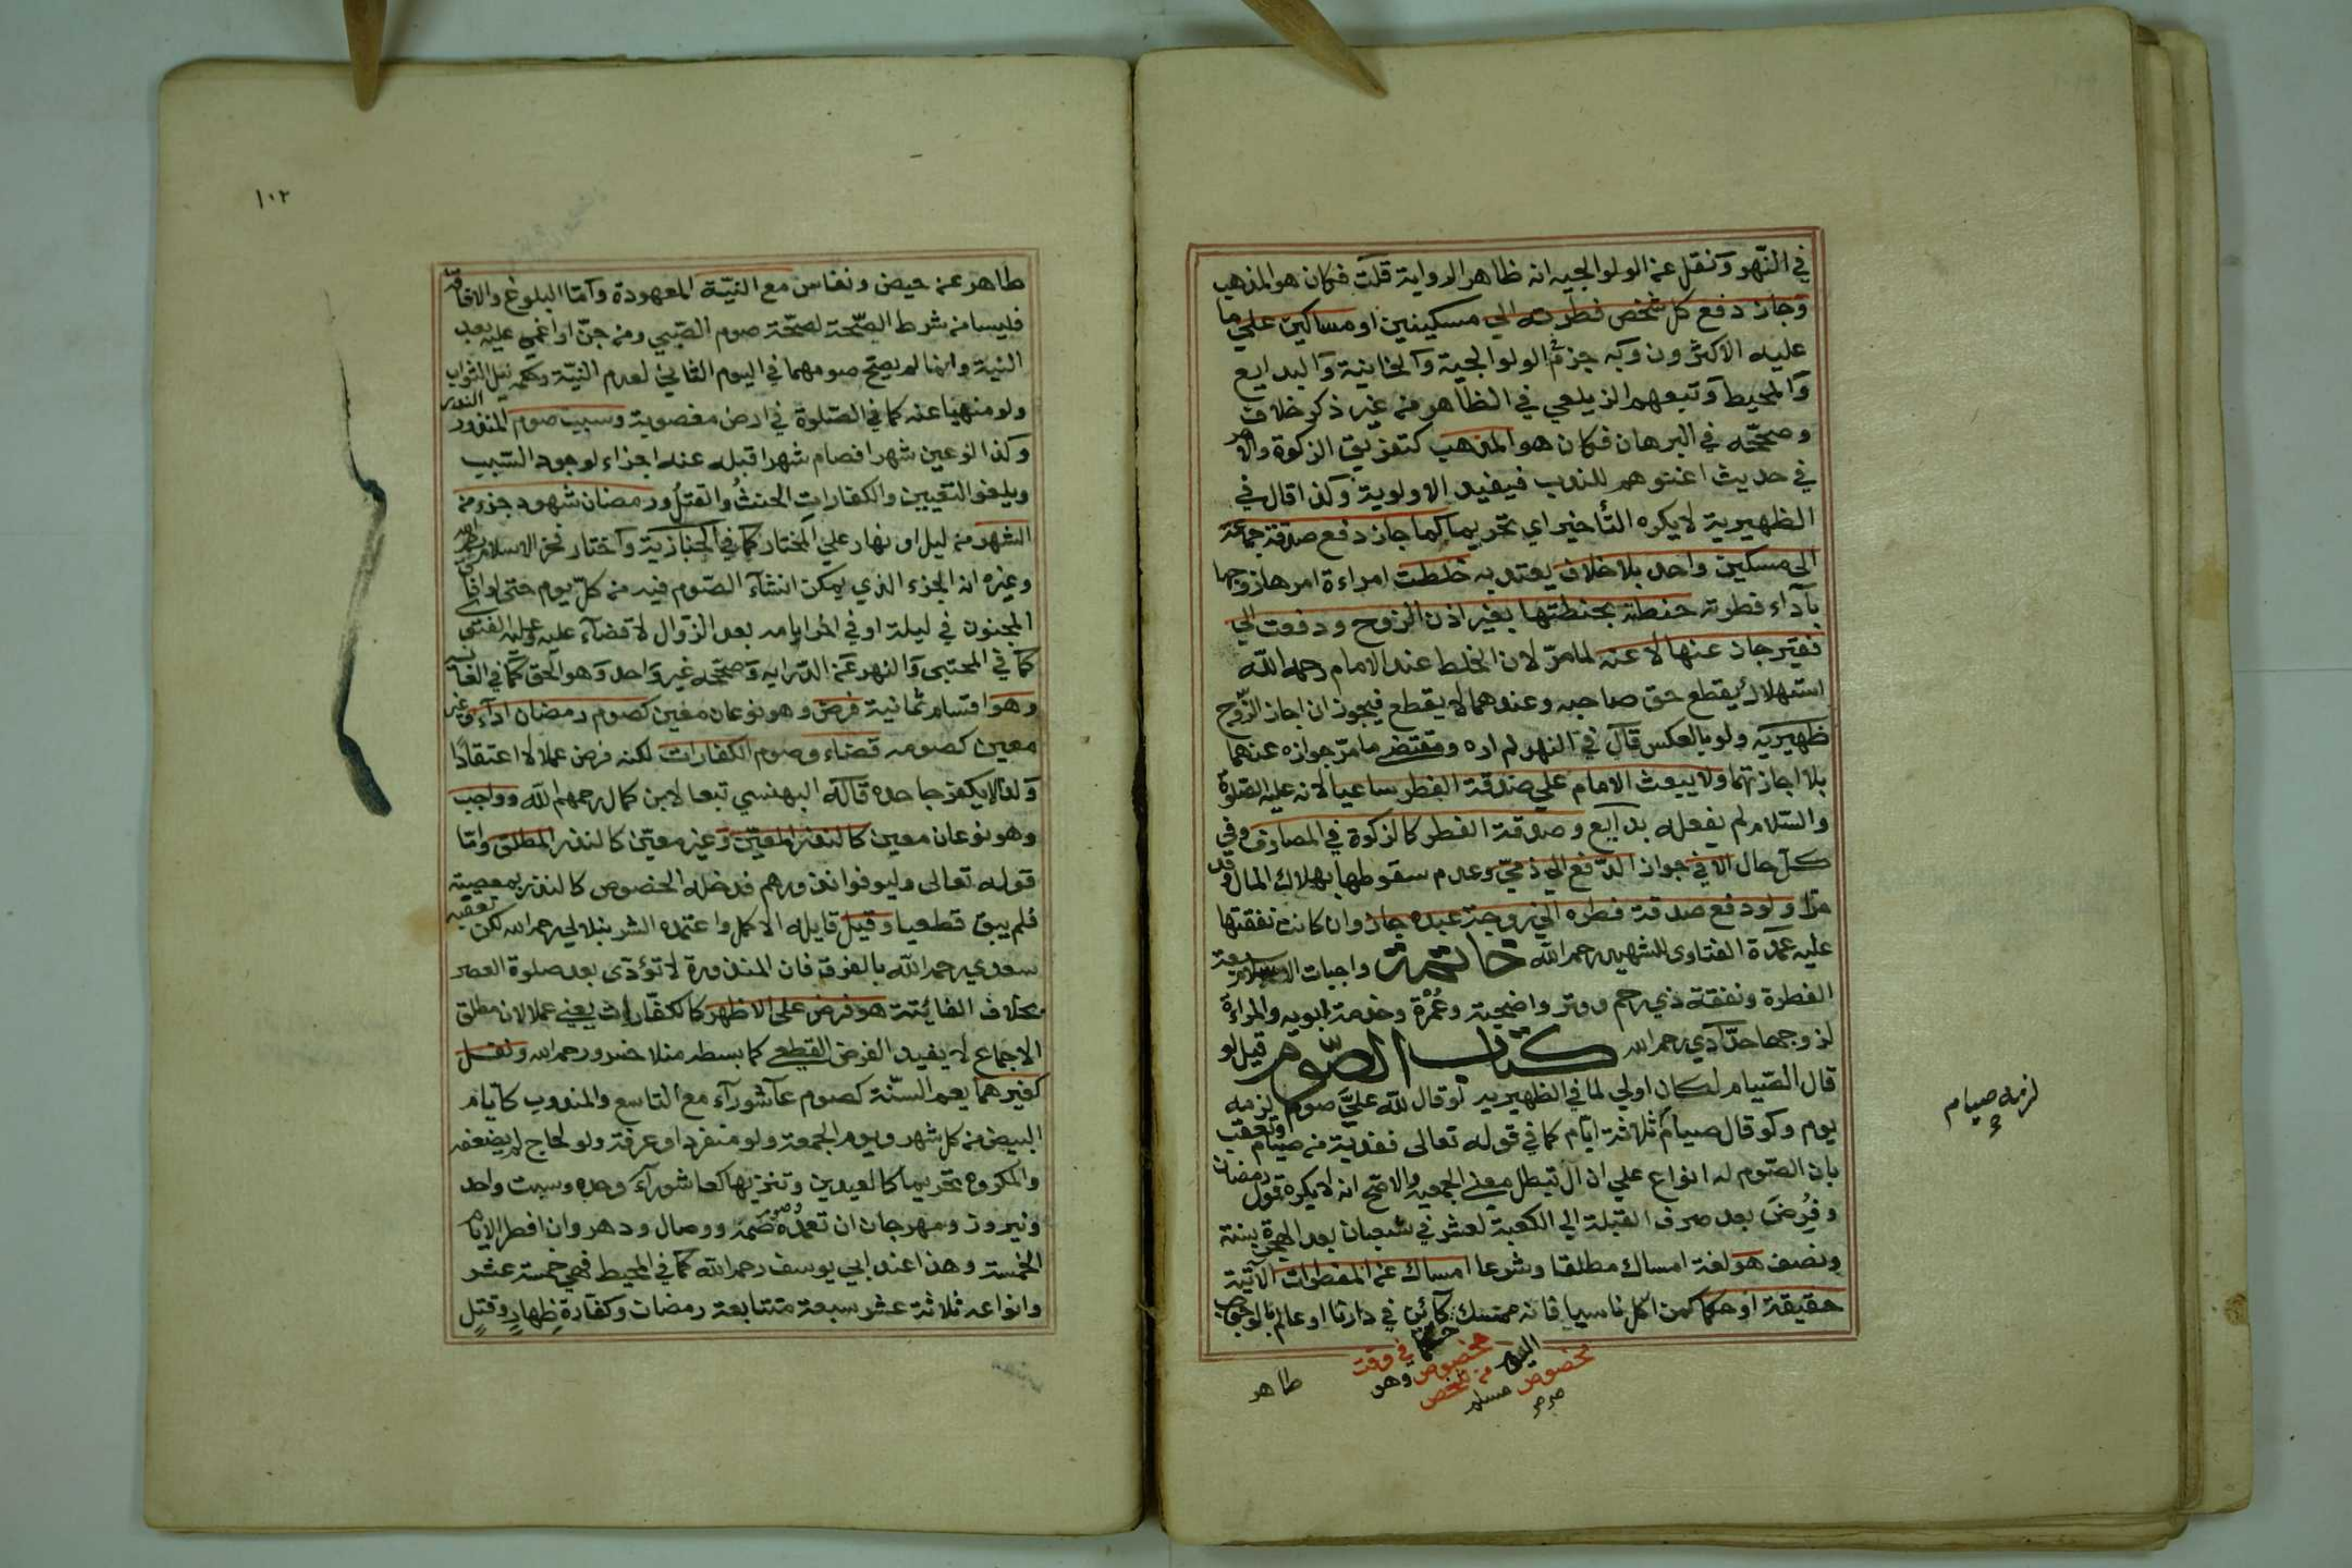 في النهر ونقل عن الولوالجيه انه ظاهر الرواية قلت فكان هو المذهب
وجاز دفع كل شخص فطرته الي مسكينين او مساكين علي ما
عليه الاكثرون وبه جزم في الولوالجية والخانية والبدايع
والمحيط وتبعهم الزيلعي في الظاهر من غير ذكر خلاف
وصححه في البرهان فكان هو المذهب كتفريق الزكوة والامر
في حديث اغنوهم للندب فيفيد الاولوية وكذا قال في
الظهيرية لا يكره التأخير اي تحريما كما جاز دفع صدقة جماعة
الى مسكين واحد بلا خلاف يعتد به خلطت امراءة امرها زوجها
بآداء فطرته حنطة بحنطتها بغير اذن الزوج ودفعت الي
فقير جاز عنها لا عنه لما مر لان الخلط عند الامام رحمه الله
استهلاك يقطع حق صاحبه وعندهما لا يقطع فيجوز ان اجاز الزوج
ظهيريه ولو بالعكس قال في النهر لم اره ومقتضى ما مر جوازه عنهما
بلا اجازتها ولا يبعث الامام علي صدقة الفطر ساعيا لانه عليه الصلوة
والسلام لم يفعله بدايع وصدقة الفطر كالزكوة في المصارف وفي
كل حال الا في جواز الدفع الي ذمي وعدم سقوطها بهلاك المال وقد
مر ولو دفع صدقة فطره الي زوجة عبده جاز وان كانت نفقتها
عليه عمدة الفتاوى للشهيد رحمه الله خاتمة واجبات الاسلام سبعة
الفطرة ونفقة ذي رحم ووتر واضحية وعمرة وخدمة ابويه والمراءة
لزوجها حدادي رحمه الله كتاب الصوم قيل لو
قال الصيام لكان اولي لما في الظهيريه لو قال لله علي صوم لزمه
يوم ولو قال صيام ثلاثة ايام كما في قوله تعالى ففدية من صيام وتعقب
بان الصوم له انواع علي ان ال تبطل معني الجمعيه والاصح انه لا يكره قول رمضان
وفرض بعد صرف القبلة الي الكعبة لعشر في شعبان بعد الهجرة بسنة
ونصف هو لغة امساك مطلقا وشرعا امساك عن المفطرات الآتية
حقيقة او حكما كمن اكل ناسيا فانه ممسك حكما في وقت مخصوص وهو اليوم من شخص مخصوص مسلم كائن في دارنا او عالم بالوجوب
طاهر
لزمه صيام
١٠٢
طاهر عن حيض ونفاس مع النية المعهودة وأما البلوغ والافاقة
فليسا من شرط الصحة لصحة صوم الصبي ومن جن او اغمي عليه بعد
النية وانما لم يصح صومهما في اليوم الثاني لعدم النية وحكمه نيل الثواب
ولو منهيا عنه كما في الصلوة في ارض مغصوبة وسبب صوم المنذور النذر
وكذا لو عين شهرا فصام شهرا قبله عنه اجزاء لوجود السبب
ويلغو التعيين والكفارات الحنث والقتل ورمضان شهود جزء من
الشهر من ليل او نهار علي المختار كما في الخبازية واختار فخر الاسلام
وغيره انه الجزء الذي يمكن انشآء الصوم فيه من كل يوم حتى لو افاق
المجنون في ليلة او في اخر ايامه بعد الزوال لا قضآء عليه وعليه الفتوى
كما في المجتبى والنهر عن الدرايه وصححه غير واحد وهو الحق كما في الغاية
وهو اقسام ثمانية فرض وهو نوعان معين كصوم رمضان ادآء وغير
معين كصومه قضاء وصوم الكفارات لكنه فرض عملا لا اعتقادا
ولذا لا يكفر جاحده قاله البهنسي تبعا لابن كمال رحمهم الله وواجب
وهو نوعان معين كالنذر المعين وغير معين كالنذر المطلق واما
قوله تعالى وليوفوا نذورهم فدخله الخصوص كالنذر بمعصية
فلم يبق قطعيا وقيل قايله الاكمل واعتمده الشرنبلالي رحمه الله لكن تعقبه
سعدي رحمه الله بالفرق فان المنذورة لا تؤدى بعد صلوة العصر
بخلاف الفائتة هو فرض على الاظهر كالكفارات يعني عملا لان مطلق
الاجماع لا يفيد الفرض القطعي كما بسطه منلا خسرو رحمه الله ونفل
كغيرهما يعم السنة كصوم عآشورآء مع التاسع والمندوب كايام
البيض من كل شهر ويوم الجمعة ولو منفردا وعرفة ولو لحاج لم يضعفه
والمكروه تحريما كالعيدين وتنزيها كعاشورآء وحده وسبت واحد
ونيروز ومهرجان ان تعمده وصوم صمت ووصال ودهر وان افطر الايام
الخمسة وهذا عند ابي يوسف رحمه الله كما في المحيط فهي خمسة عشر
وانواعه ثلاثة عشر سبعة متتابعة رمضان وكفارة ظهار وقتل